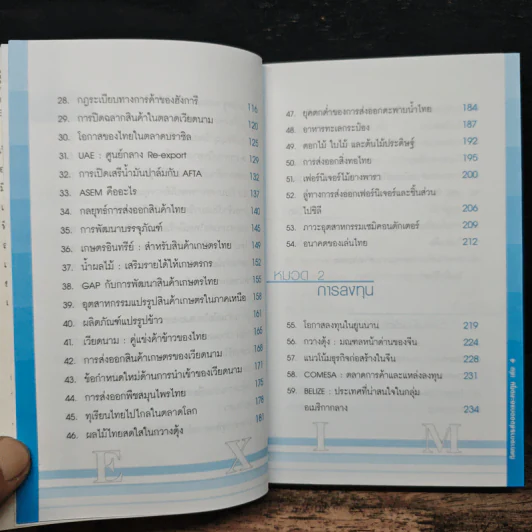 28. กฎระเบียบทางการค้าของฮังการี 116
29. การปิดฉลากสินค้าในตลาดเวียดนาม 120
30. โอกาสของไทยในตลาดบราซิล 125
31. UAE : ศูนย์กลาง Re-export 129
32. การเปิดเสรีน้ำมันปาล์มกับ AFTA 132
33. ASEM คืออะไร 137
34. กลยุทธ์การส่งออกสินค้าไทย 140
35. การพัฒนาบรรจุภัณฑ์ 145
36. เกษตรอินทรีย์ : สำหรับสินค้าเกษตรไทย 149
37. น้ำผลไม้ : เสริมรายได้ให้เกษตรกร 152
38. GAP กับการพัฒนาสินค้าเกษตรไทย 155
39. อุตสาหกรรมแปรรูปสินค้าเกษตรในภาคเหนือ 158
40. ผลิตภัณฑ์แปรรูปข้าว 161
41. เวียดนาม : คู่แข่งค้าข้าวของไทย 165
42. การส่งออกสินค้าเกษตรของเวียดนาม 168
43. ข้อกำหนดใหม่ด้านการนำเข้าของเวียดนาม 171
44. การส่งออกพืชสมุนไพรไทย 175
45. ทุเรียนไทยไปไกลในตลาดโลก 178
46. ผลไม้ไทยสดใสในกวางตุ้ง 181
E X
47. ยุคตกต่ำของการส่งออกตะพาบน้ำไทย 184
48. อาหารทะเลกระป๋อง 187
49. ดอกไม้ ใบไม้ และต้นไม้ประดิษฐ์ 192
50. การส่งออกสิ่งทอไทย 195
51. เฟอร์นิเจอร์ไม้ยางพารา 200
52. ลู่ทางการส่งออกเฟอร์นิเจอร์และชิ้นส่วน
ไปชิลี 206
53. ภาวะอุตสาหกรรมเซมิคอนดักเตอร์ 209
54. อนาคตของเล่นไทย 212
หมวด 2
การลงทุน
55. โอกาสลงทุนในยูนนาน 219
56. กวางตุ้ง : มณฑลหน้าด่านของจีน 224
57. แนวโน้มธุรกิจก่อสร้างในจีน 228
58. COMESA : ตลาดการค้าและแหล่งลงทุน 231
59. BELIZE : ประเทศที่น่าสนใจในกลุ่ม
อเมริกากลาง 234
I M